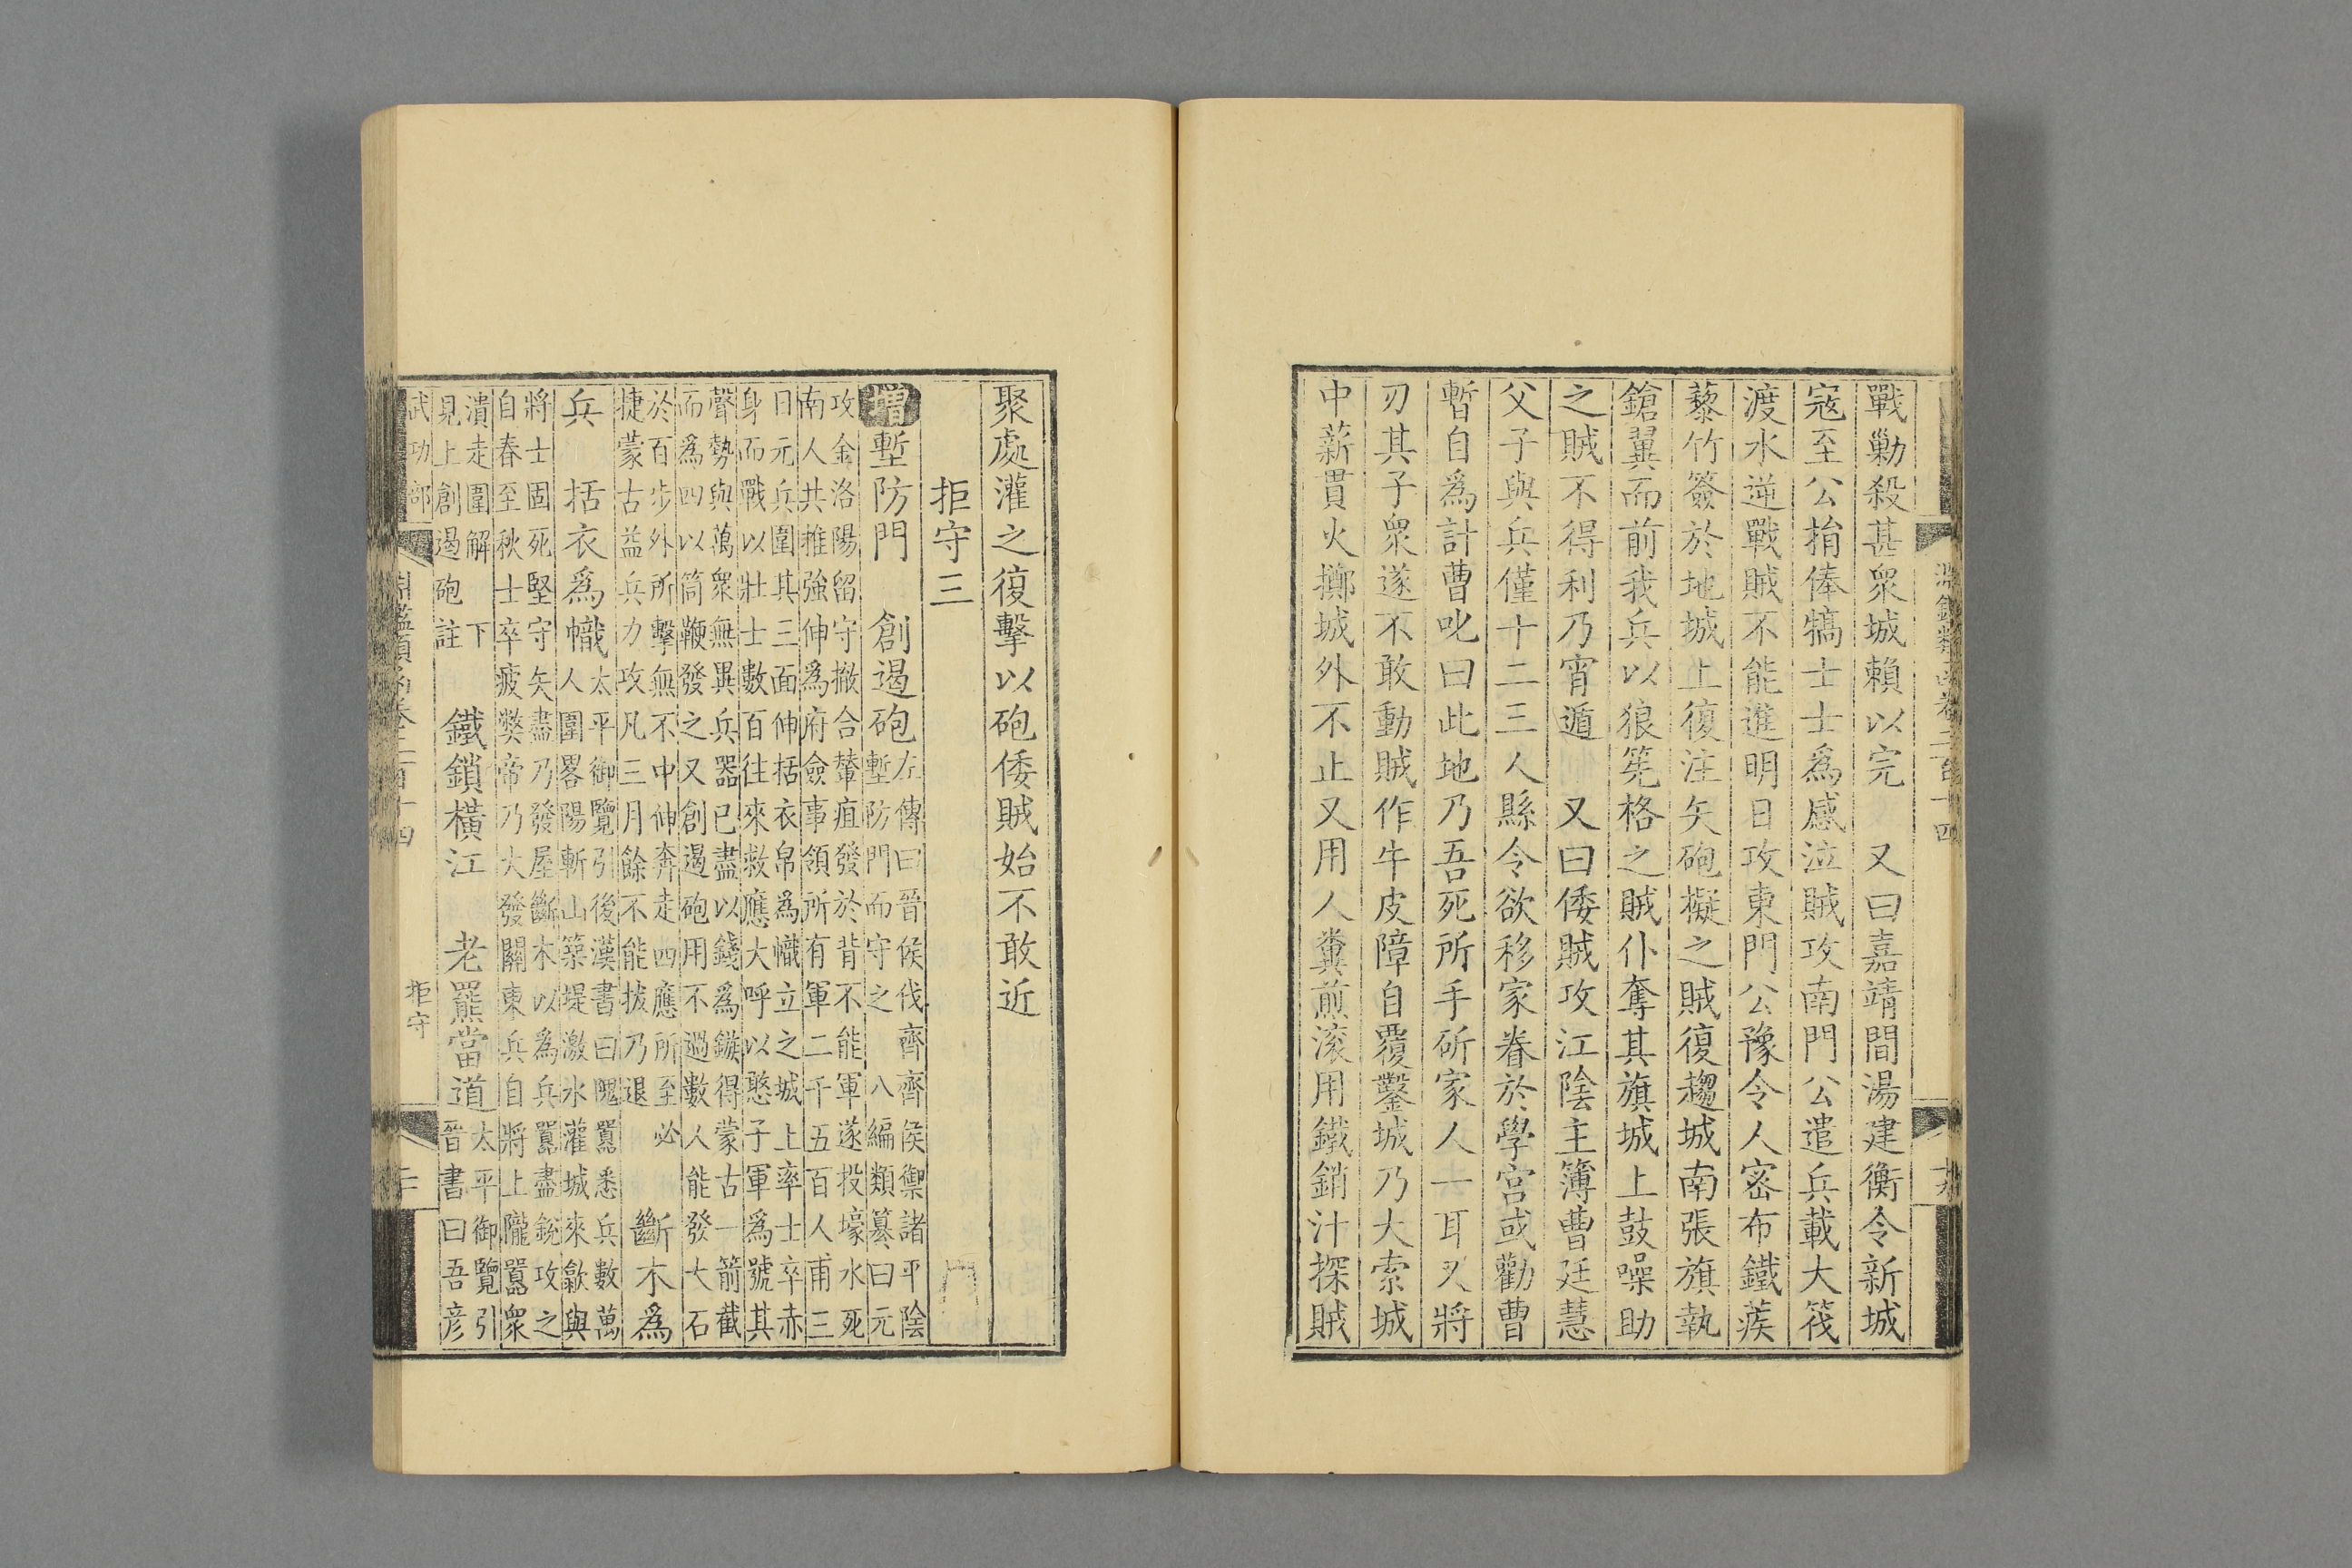 戰勦殺甚衆城賴以完　又曰嘉靖間湯建衡令新城
寇至公捐俸犒士士爲感泣賊攻南門公遣兵載大筏
渡水逆戰賊不能進明日攻東門公豫令人密布鐵蒺
藜竹簽於地城上復注矢砲擬之賊復趨城南張旗執
鎗翼而前我兵以狼筅格之賊仆奪其旗城上鼓噪助
之賊不得利乃宵遁　又曰倭賊攻江陰主簿曹廷慧
父子與兵僅十二三人縣令欲移家眷於學宮或勸曹
暫自爲計曹叱曰此地乃吾死所手斫家人一耳又將
刃其子衆遂不敢動賊作牛皮障自覆鑿城乃大索城
中薪貫火擲城外不止又用人糞煎滾用鐵銷汁探賊
聚處灌之復擊以砲倭賊始不敢近
拒守三
增塹防門　創遏砲左傳曰晉侯伐齊齊侯禦諸平陰
塹防門而守之　八編類纂曰元
攻金洛陽留守撒合輦疽發於背不能軍遂投壕水死
南人共推強伸爲府僉事領所有軍二千五百人甫三
日元兵圍其三面伸括衣帛爲幟立之城上率士卒赤
身而戰以壯士數百往來救應大呼以憨子軍爲號其
聲勢與萬衆無異兵器已盡以錢爲鏃得蒙古一箭截
而爲四以筒鞭發之又創遏砲用不過數人能發大石
於百步外所擊無不中伸奔走四應所至必
捷蒙古益兵力攻凡三月餘不能拔乃退　斷木爲
兵　括衣爲幟太平御覽引後漢書曰隗囂悉兵數萬
人圍畧陽斬山築堤激水灌城來歙與
將士固死堅守矢盡乃發屋斷木以爲兵囂盡銳攻之
自春至秋士卒疲獘帝乃大發關東兵自將上隴囂衆
潰走圍解　下
見上創遏砲註　鐵鎖橫江　老羆當道太平御覽引
晉書曰吾彥
武功部
淵鑑類函卷二百十四
拒守